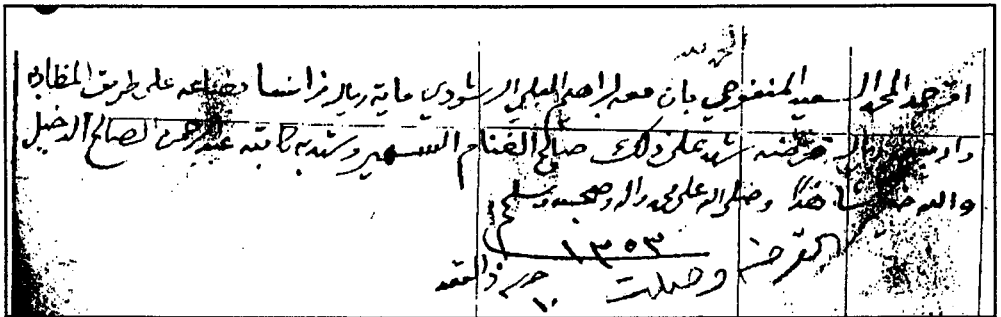 الحمد لله
اقر حمد المحمد السعيد المنفوحي بان معه لبراهيم العلي الرشودي ماية ريال فرانسا بضاعه على طريق المظاربه
واربعين ريال قرضه شهد على ذلك صالح الغنام السهير وشهد به كاتبه عبدالرحمن الصالح الدخيل
والله خير شاهدا وصلى الله على محمد واله وصحبه وسلم
القرضه وصلت ١٣٥٣
جرى ١٠ ذالقعد